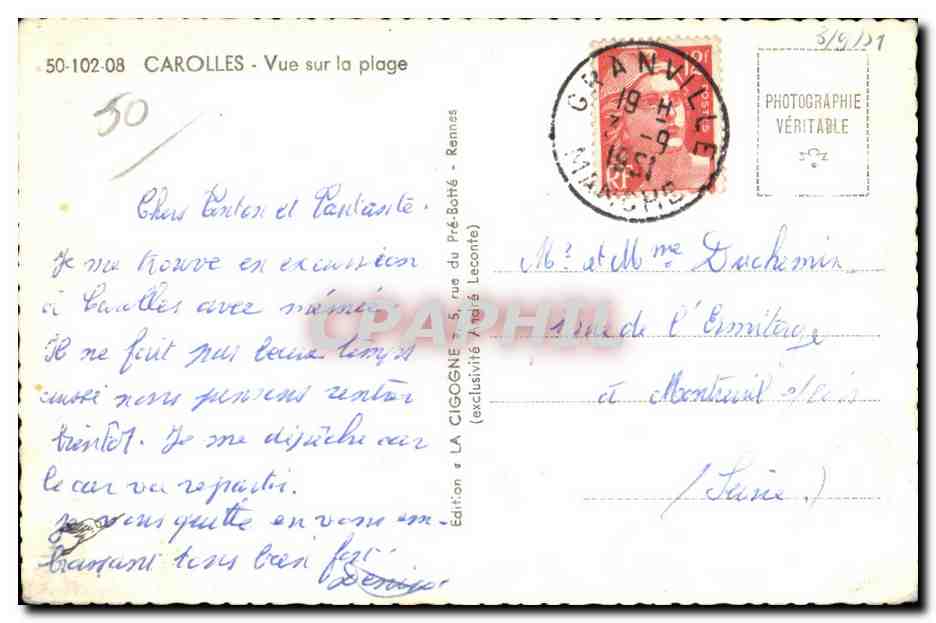 50-102-08 CAROLLES - Vue sur la plage
50
3/9/51
12F
POSTES
RF
GRANVILLE
19 H
3 - 9
1951
MANCHE
PHOTOGRAPHIE
VÉRITABLE
Chers Tonton et
Je me trouve en excursion
à Carolles avec mémée
Il ne fait pas beau temps
aussi nous pensons rentrer
bientôt. Je me dépêche car
le car va repartir.
Je vous quitte en vous em-
brassant tous bien fort.
Denise
Edition LA CIGOGNE 5, rue du Pré-Botté - Rennes
(exclusivité André Leconte)
Mr et Mme Duchemin
rue de l'Ermitage
à Montreuil s/Bois
(Seine)
CPAPHIL